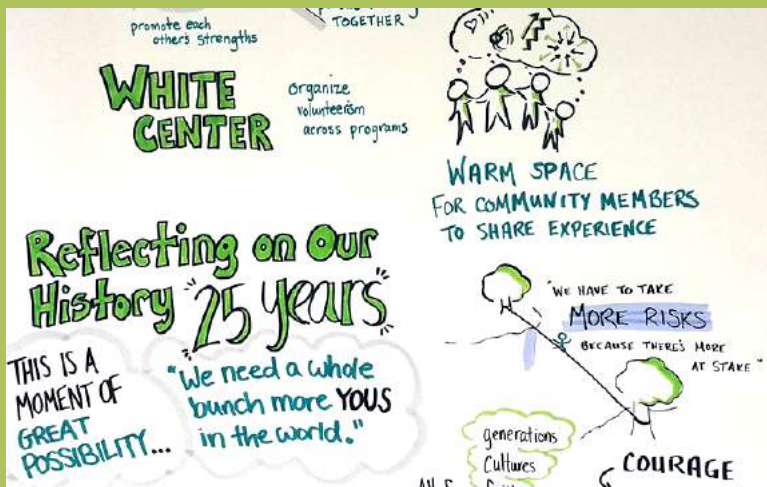 promote each
other's strengths
TOGETHER
WHITE
CENTER
organize
volunteerism
across programs
WARM SPACE
FOR COMMUNITY MEMBERS
TO SHARE EXPERIENCE
Reflecting on Our
History "25 years"
THIS IS A
MOMENT OF
GREAT
POSSIBILITY...
"We need a whole
bunch more YOUS
in the world."
"WE HAVE TO TAKE
MORE RISKS
BECAUSE THERE'S MORE
AT STAKE"
generations
Cultures
COURAGE